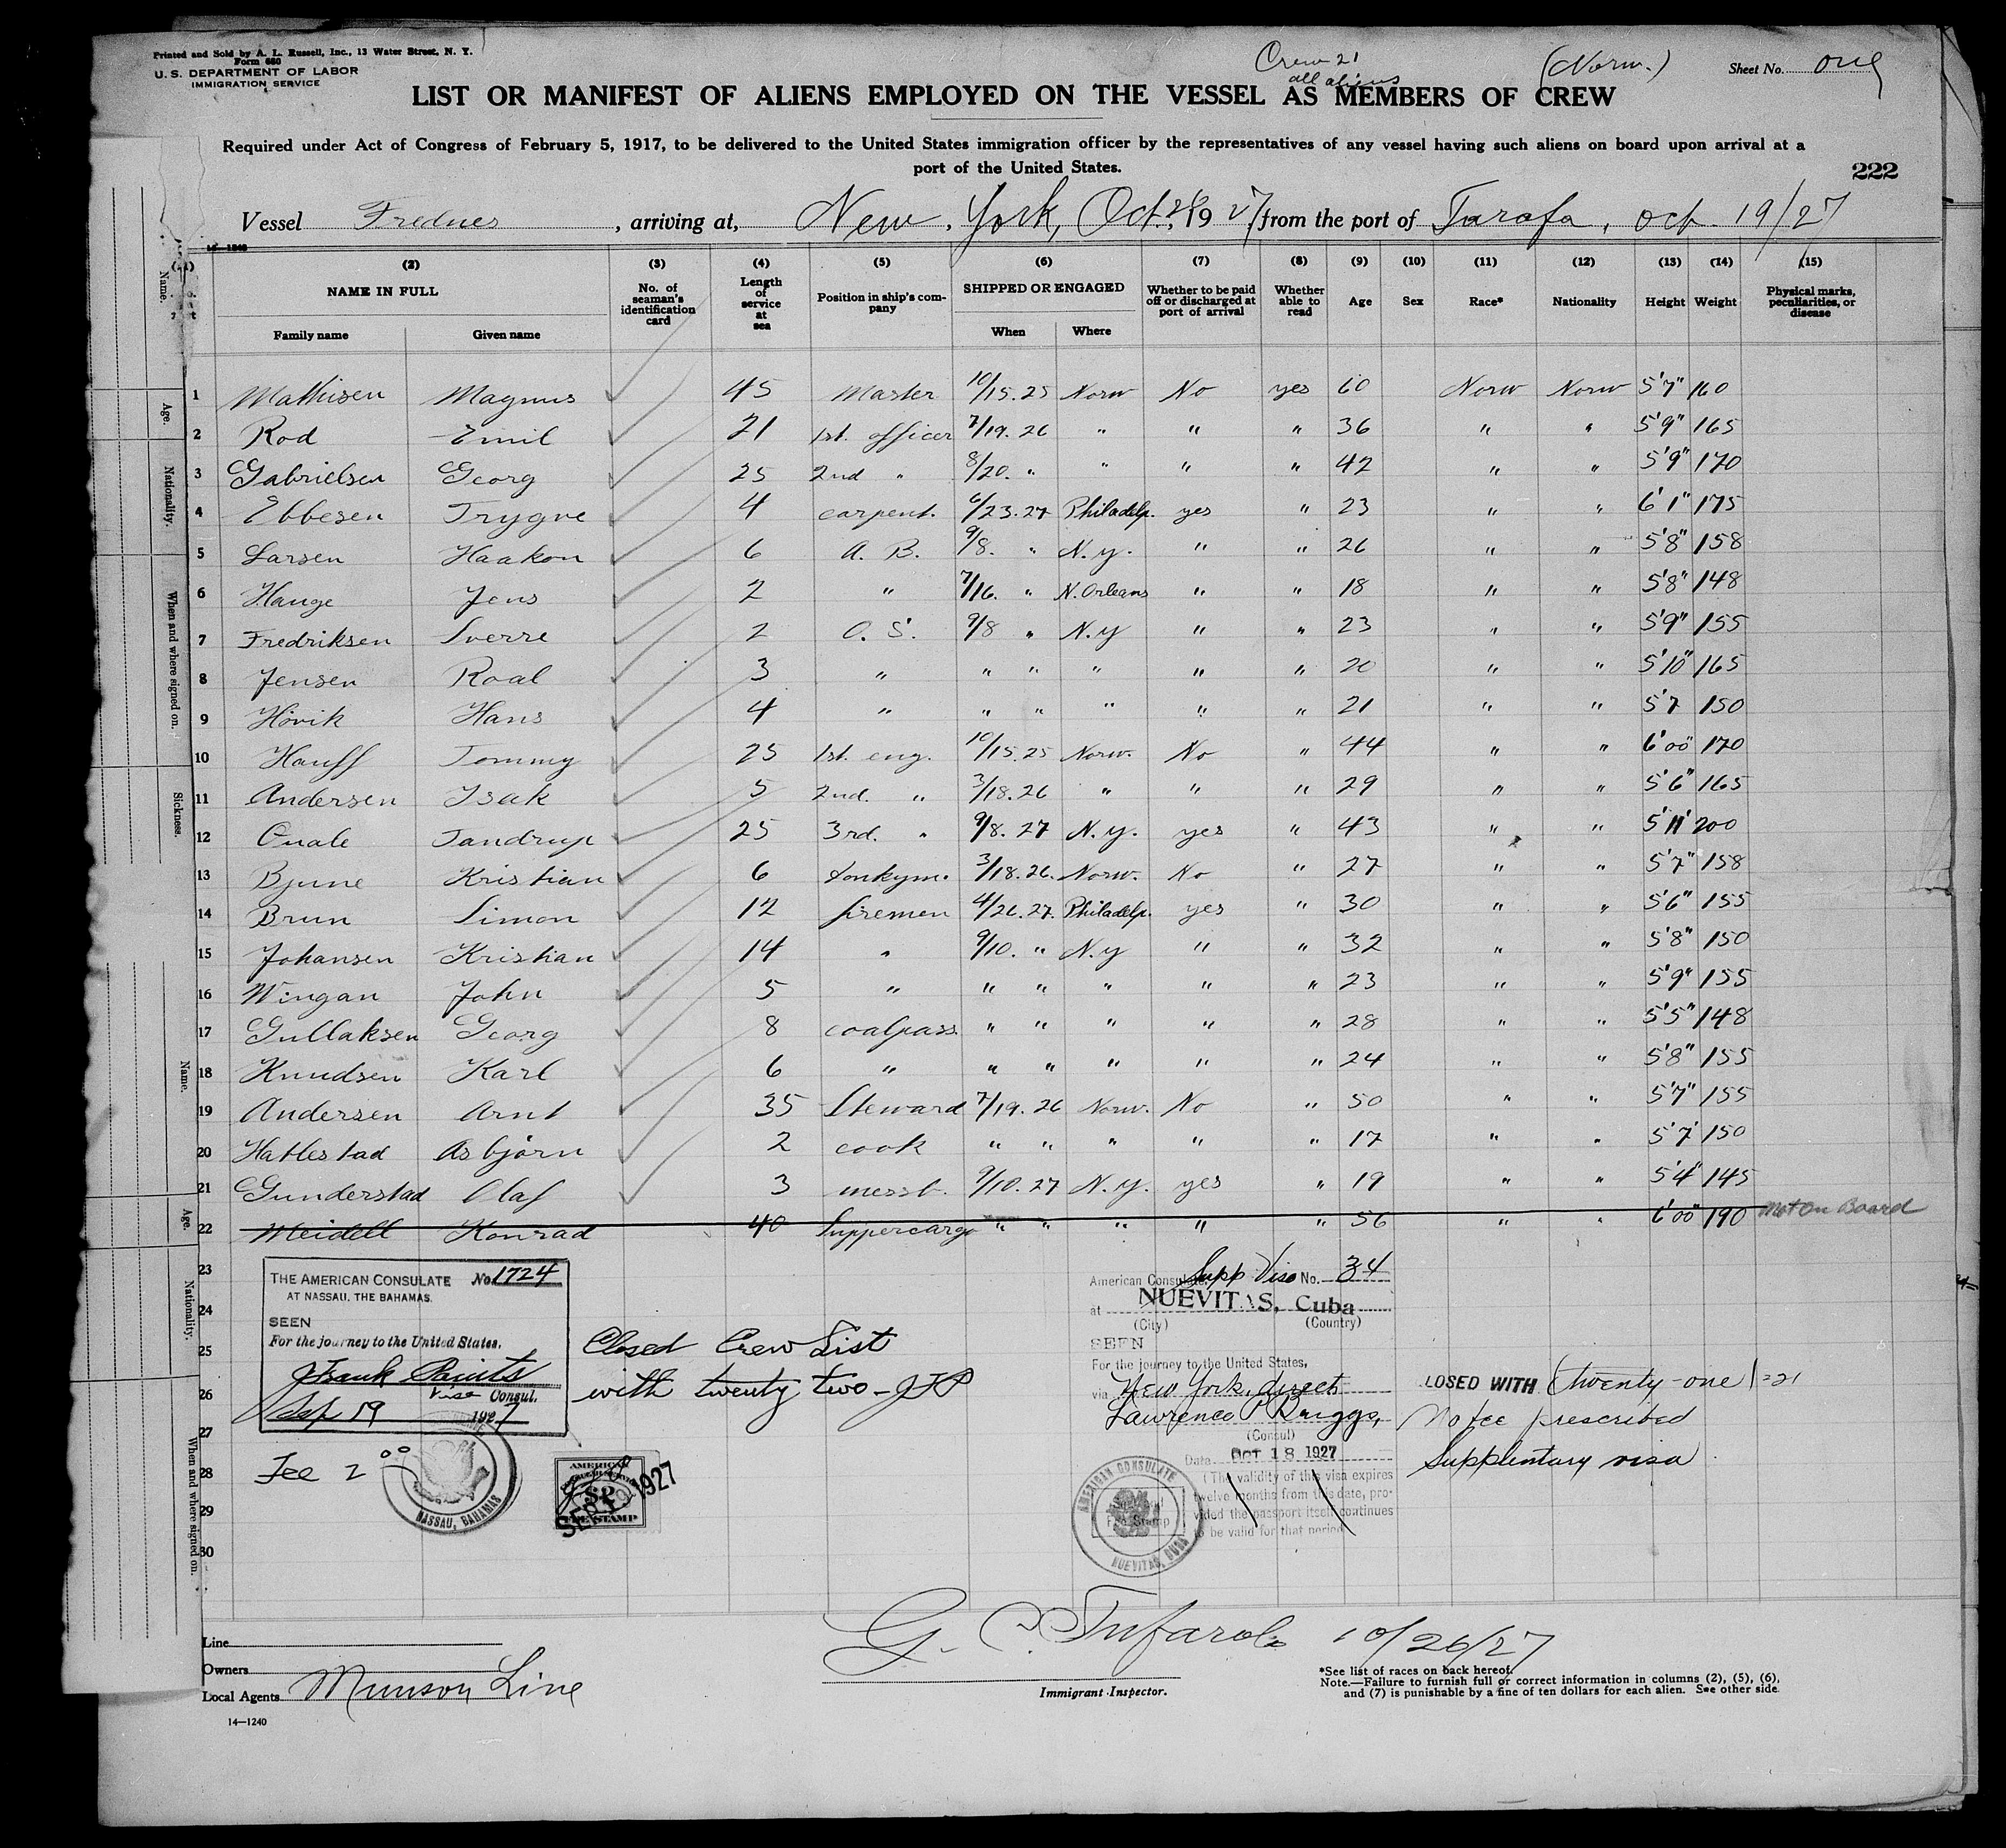 Printed and Sold by A. L. Russell, Inc., 13 Water Street, N. Y.
Form 680
U. S. DEPARTMENT OF LABOR
IMMIGRATION SERVICE
Crew 21
all aliens
(Norw.)
Sheet No. one
LIST OR MANIFEST OF ALIENS EMPLOYED ON THE VESSEL AS MEMBERS OF CREW
Required under Act of Congress of February 5, 1917, to be delivered to the United States immigration officer by the representatives of any vessel having such aliens on board upon arrival at a
port of the United States.
222
Vessel Frednes, arriving at, New York, Oct. 26, 1927, from the port of Tarafa, Oct. 19/27
14—1240
(1) (2) (3) (4) (5) (6) (7) (8) (9) (10) (11) (12) (13) (14) (15)
NAME IN FULL
Family name Given name
No. of seaman's identification card
Length of service at sea
Position in ship's company
SHIPPED OR ENGAGED
When Where
Whether to be paid off or discharged at port of arrival
Whether able to read
Age Sex Race* Nationality Height Weight
Physical marks, peculiarities, or disease
1 Mathisen Magnus 45 Master 10/15.25 Norw No yes 60 Norw Norw 5'7" 160
2 Rod Emil 21 1st. officer 7/19.26 " " " 36 " " 5'9" 165
3 Gabrielsen Georg 25 2nd " 8/20. " " " " 42 " " 5'9" 170
4 Ebbesen Trygve 4 carpent. 6/23.27 Philadelp. yes " 23 " " 6'1" 175
5 Larsen Haakon 6 A. B. 9/8. " N. y. " " 26 " " 5'8" 158
6 Hauge Jens 2 " 7/16. " N. Orleans " " 18 " " 5'8" 148
7 Fredriksen Sverre 2 O. S. 9/8 " N. y " " 23 " " 5'9" 155
8 Jensen Roal 3 " " " " " " 20 " " 5'10" 165
9 Hövik Hans 4 " " " " " " 21 " " 5'7 150
10 Hauff Tommy 25 1st. eng. 10/15.25 Norw. No " 44 " " 6'00" 170
11 Andersen Isak 5 2nd. " 3/18.26 " " " 29 " " 5'6" 165
12 Quale Tandrup 25 3rd. " 9/8.27 N. y. yes " 43 " " 5'11' 200
13 Bjune Kristian 6 donkym. 3/18.26. Norw. No " 27 " " 5'7" 158
14 Brun Simon 12 firemen 4/26.27. Philadelp. yes " 30 " " 5'6" 155
15 Johansen Kristian 14 " 9/10. " N. y " " 32 " " 5'8" 150
16 Wingan John 5 " " " " " " 23 " " 5'9" 155
17 Gullaksen Georg 8 coalpass. " " " " " 28 " " 5'5" 148
18 Knudsen Karl 6 " " " " " " 24 " " 5'8" 155
19 Andersen Arnt 35 Steward 7/19.26 Norw. No " 50 " " 5'7" 155
20 Hatlestad Asbjörn 2 cook " " " " " 17 " " 5'7' 150
21 Gunderstad Olaf 3 messb. 9/10.27 N. y. yes " 19 " " 5'4" 145
22 Meidell Konrad 40 Suppercargo " " " " " 56 " " 6'00" 190 Not On Board
23
24
25
26
27
28
29
30
THE AMERICAN CONSULATE No. 1724
AT NASSAU, THE BAHAMAS.
SEEN
For the journey to the United States.
Vice Consul.
Sep 19 1927
Fee 2 00
NASSAU, BAHAMAS
AMERICAN
$2
FEE STAMP
SEP 19 1927
Closed Crew List
with twenty two –
American Consulate, Supp Visa No. 34
at NUEVITAS, Cuba
(City) (Country)
SEEN
For the journey to the United States,
via New York, direct
Lawrence P Briggs,
(Consul)
Date OCT 18 1927
(The validity of this visa expires
twelve months from this date, pro-
vided the passport itself continues
to be valid for that period
AMERICAN CONSULATE
NUEVITAS, CUBA
LOSED WITH (twenty-one) = 21
No fee prescribed
Supplentary visa
Line
Owners
Local Agents Munson Line
14—1240
10/26/27
Immigrant Inspector.
*See list of races on back hereof.
Note.—Failure to furnish full or correct information in columns (2), (5), (6),
and (7) is punishable by a fine of ten dollars for each alien. See other side.
Name.
Age.
Nationality.
When and where signed on.
Sickness.
Name.
Age.
Nationality.
When and where signed on.